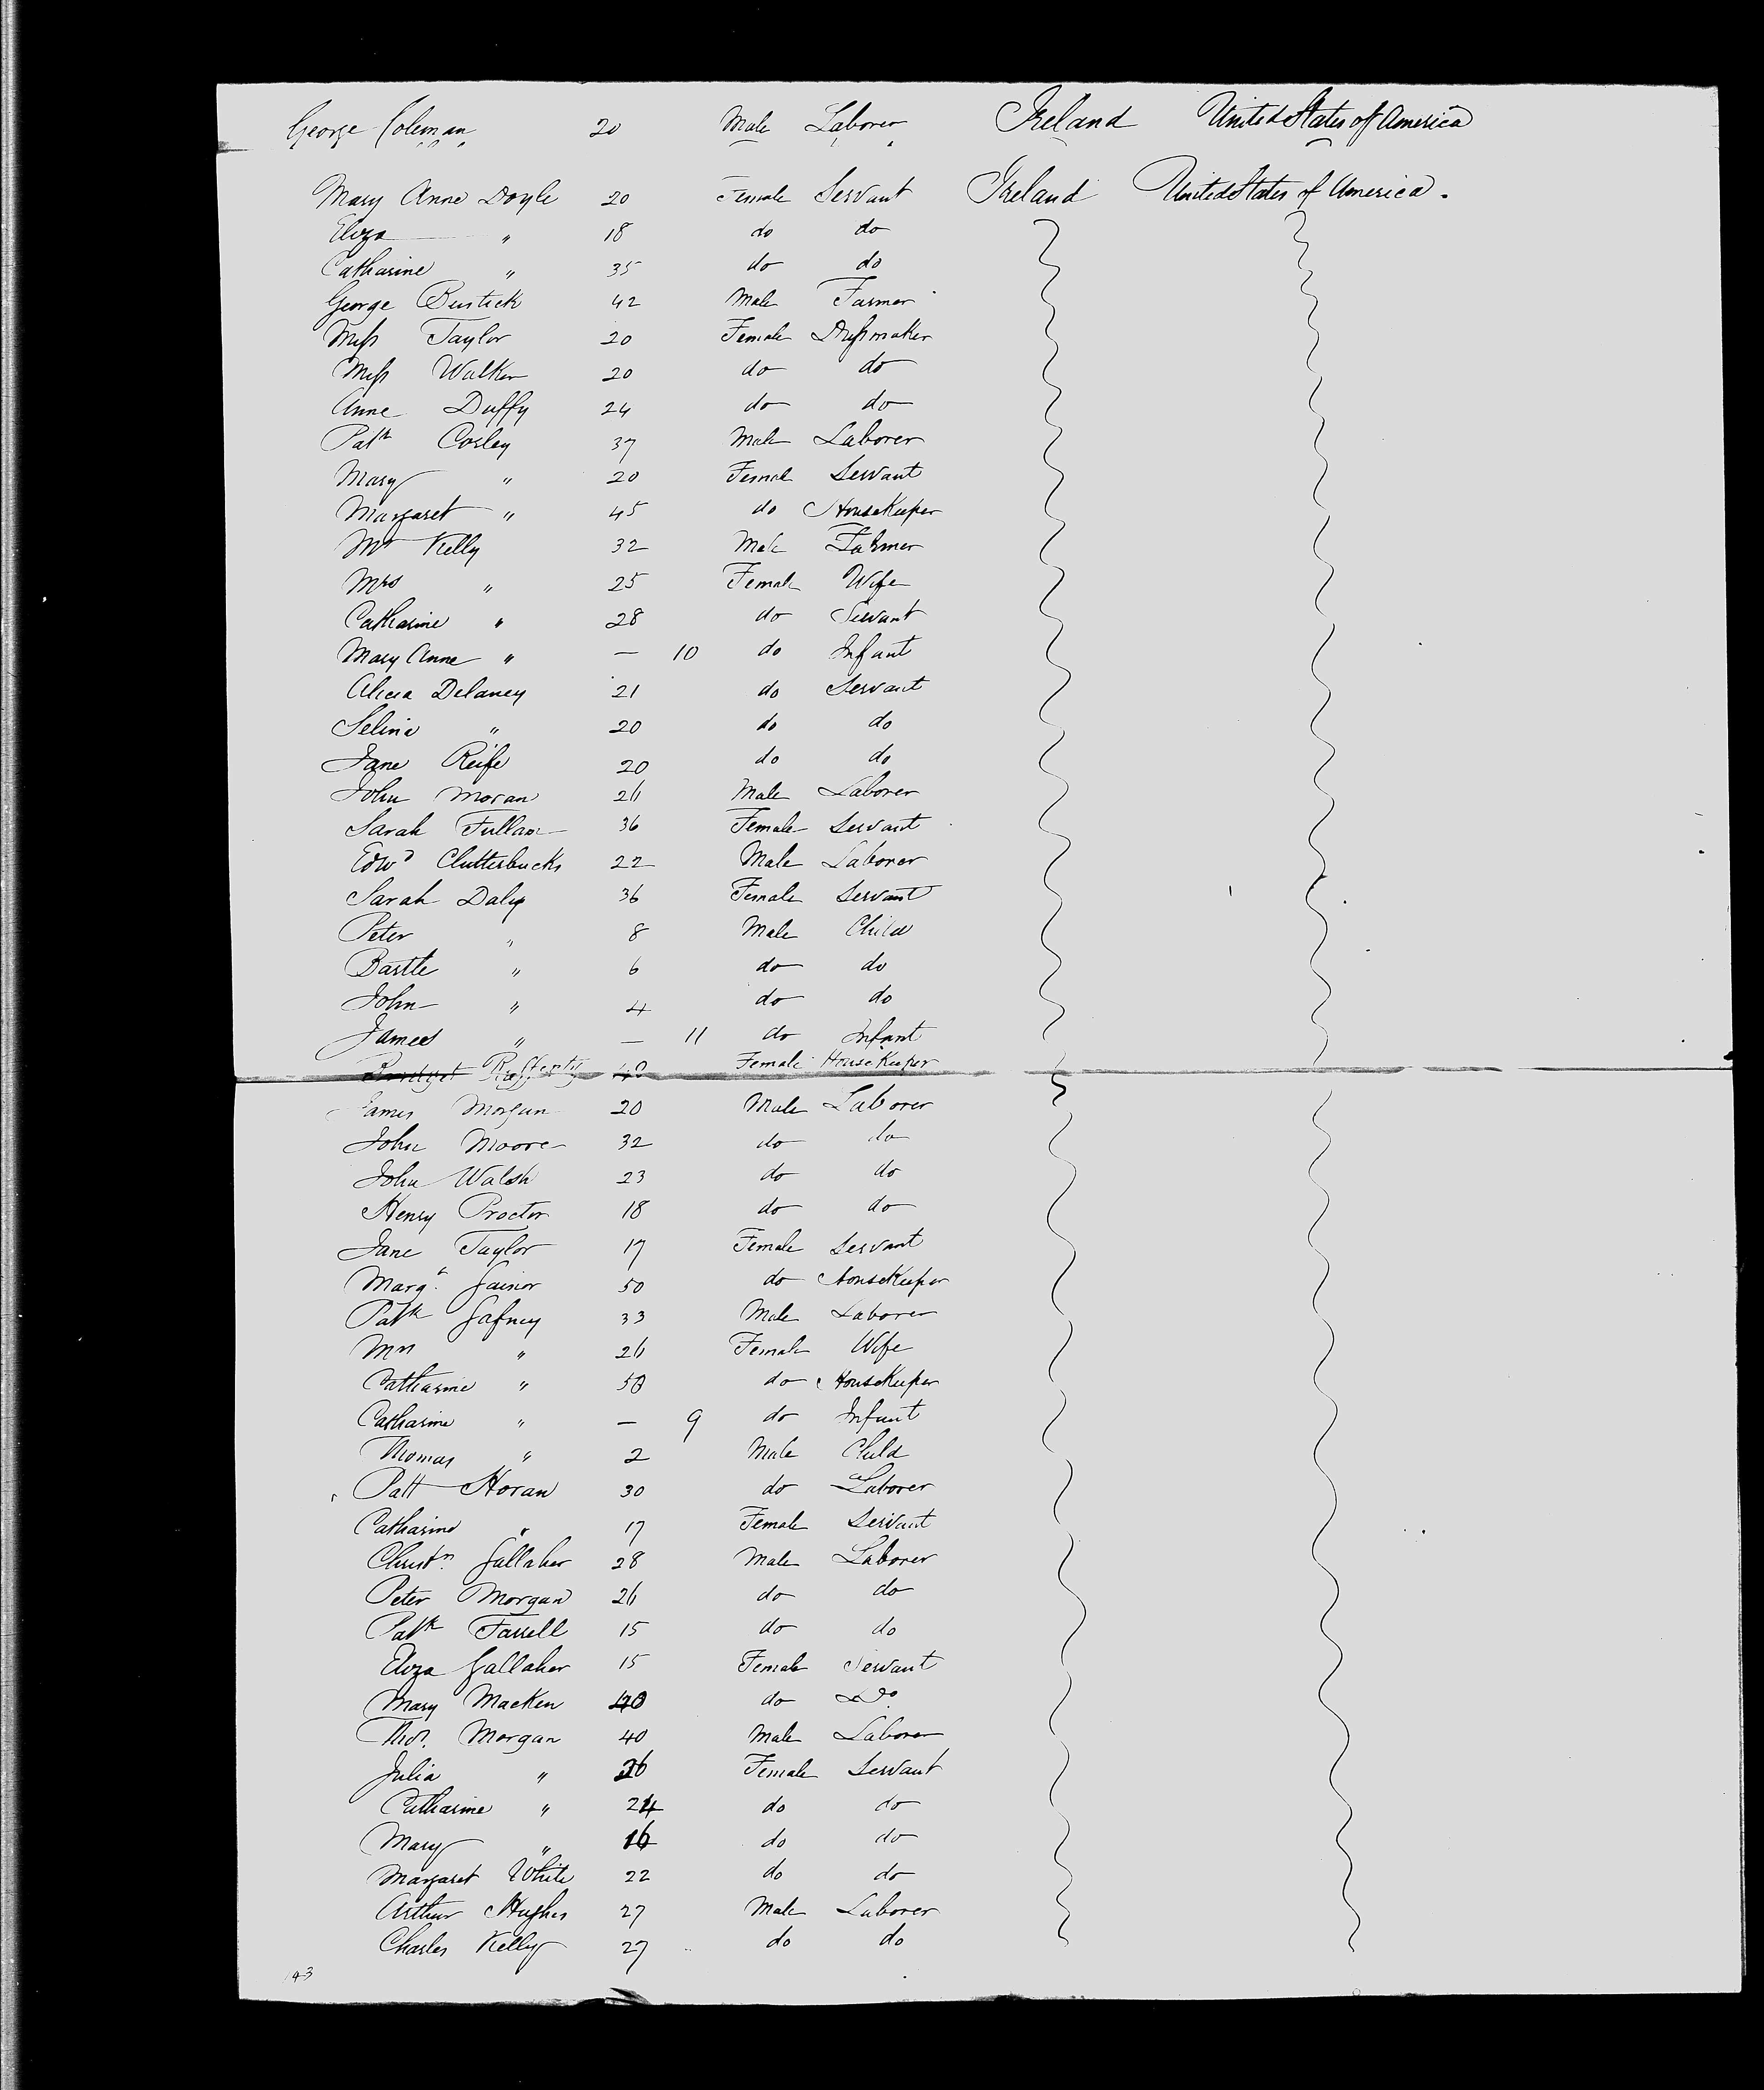 George Coleman 20 Male Laborer Ireland United States of America
Mary Anne Doyle 20 Female Servant Ireland United States of America.
Eliza " 18 do do
Catharine " 35 do do
George Bustick 42 Male Farmer
Miss Taylor 20 Female Dressmaker
Miss Walker 20 do do
Anne Duffy 24 do do
Patk Corley 37 Male Laborer
Mary " 20 Female Servant
Margaret " 45 do HouseKeeper
Mr Kelly 32 Male Farmer
Mrs " 25 Female Wife
Catharine " 28 do Servant
Mary Anne " — 10 do Infant
Alicia Delaney 21 do Servant
Selina " 20 do do
Jane Reife 20 do do
John Moran 26 Male Laborer
Sarah Fullam 36 Female Servant
Edwd Clutterbucks 22 Male Laborer
Sarah Daly 36 Female Servant
Peter " 8 Male Child
Bartle " 6 do do
John " 4 do do
James " — 11 do Infant
Bridget Rafferty 40 Female HouseKeeper
James Morgan 20 Male Laborer
John Moore 32 do do
John Walsh 23 do do
Henry Proctor 18 do do
Jane Taylor 17 Female Servant
Margt. Gainor 50 do HouseKeeper
Patk Gafney 33 Male Laborer
Mrs " 26 Female Wife
Catharine " 50 do HouseKeeper
Catharine " — 9 do Infant
Thomas " 2 Male Child
Patt Horan 30 do Laborer
Catharine " 17 Female Servant
Christr. Gallaher 28 Male Laborer
Peter Morgan 26 do do
Patk Farrell 15 do do
Eliza Gallaher 15 Female Servant
Mary Macken 40 do Do
Thos. Morgan 40 Male Laborer
Julia " 36 Female Servant
Catharine " 24 do do
Mary " 16 do do
Margaret White 22 do do
Arthur Hughes 27 Male Laborer
Charles Kelly 27 do do